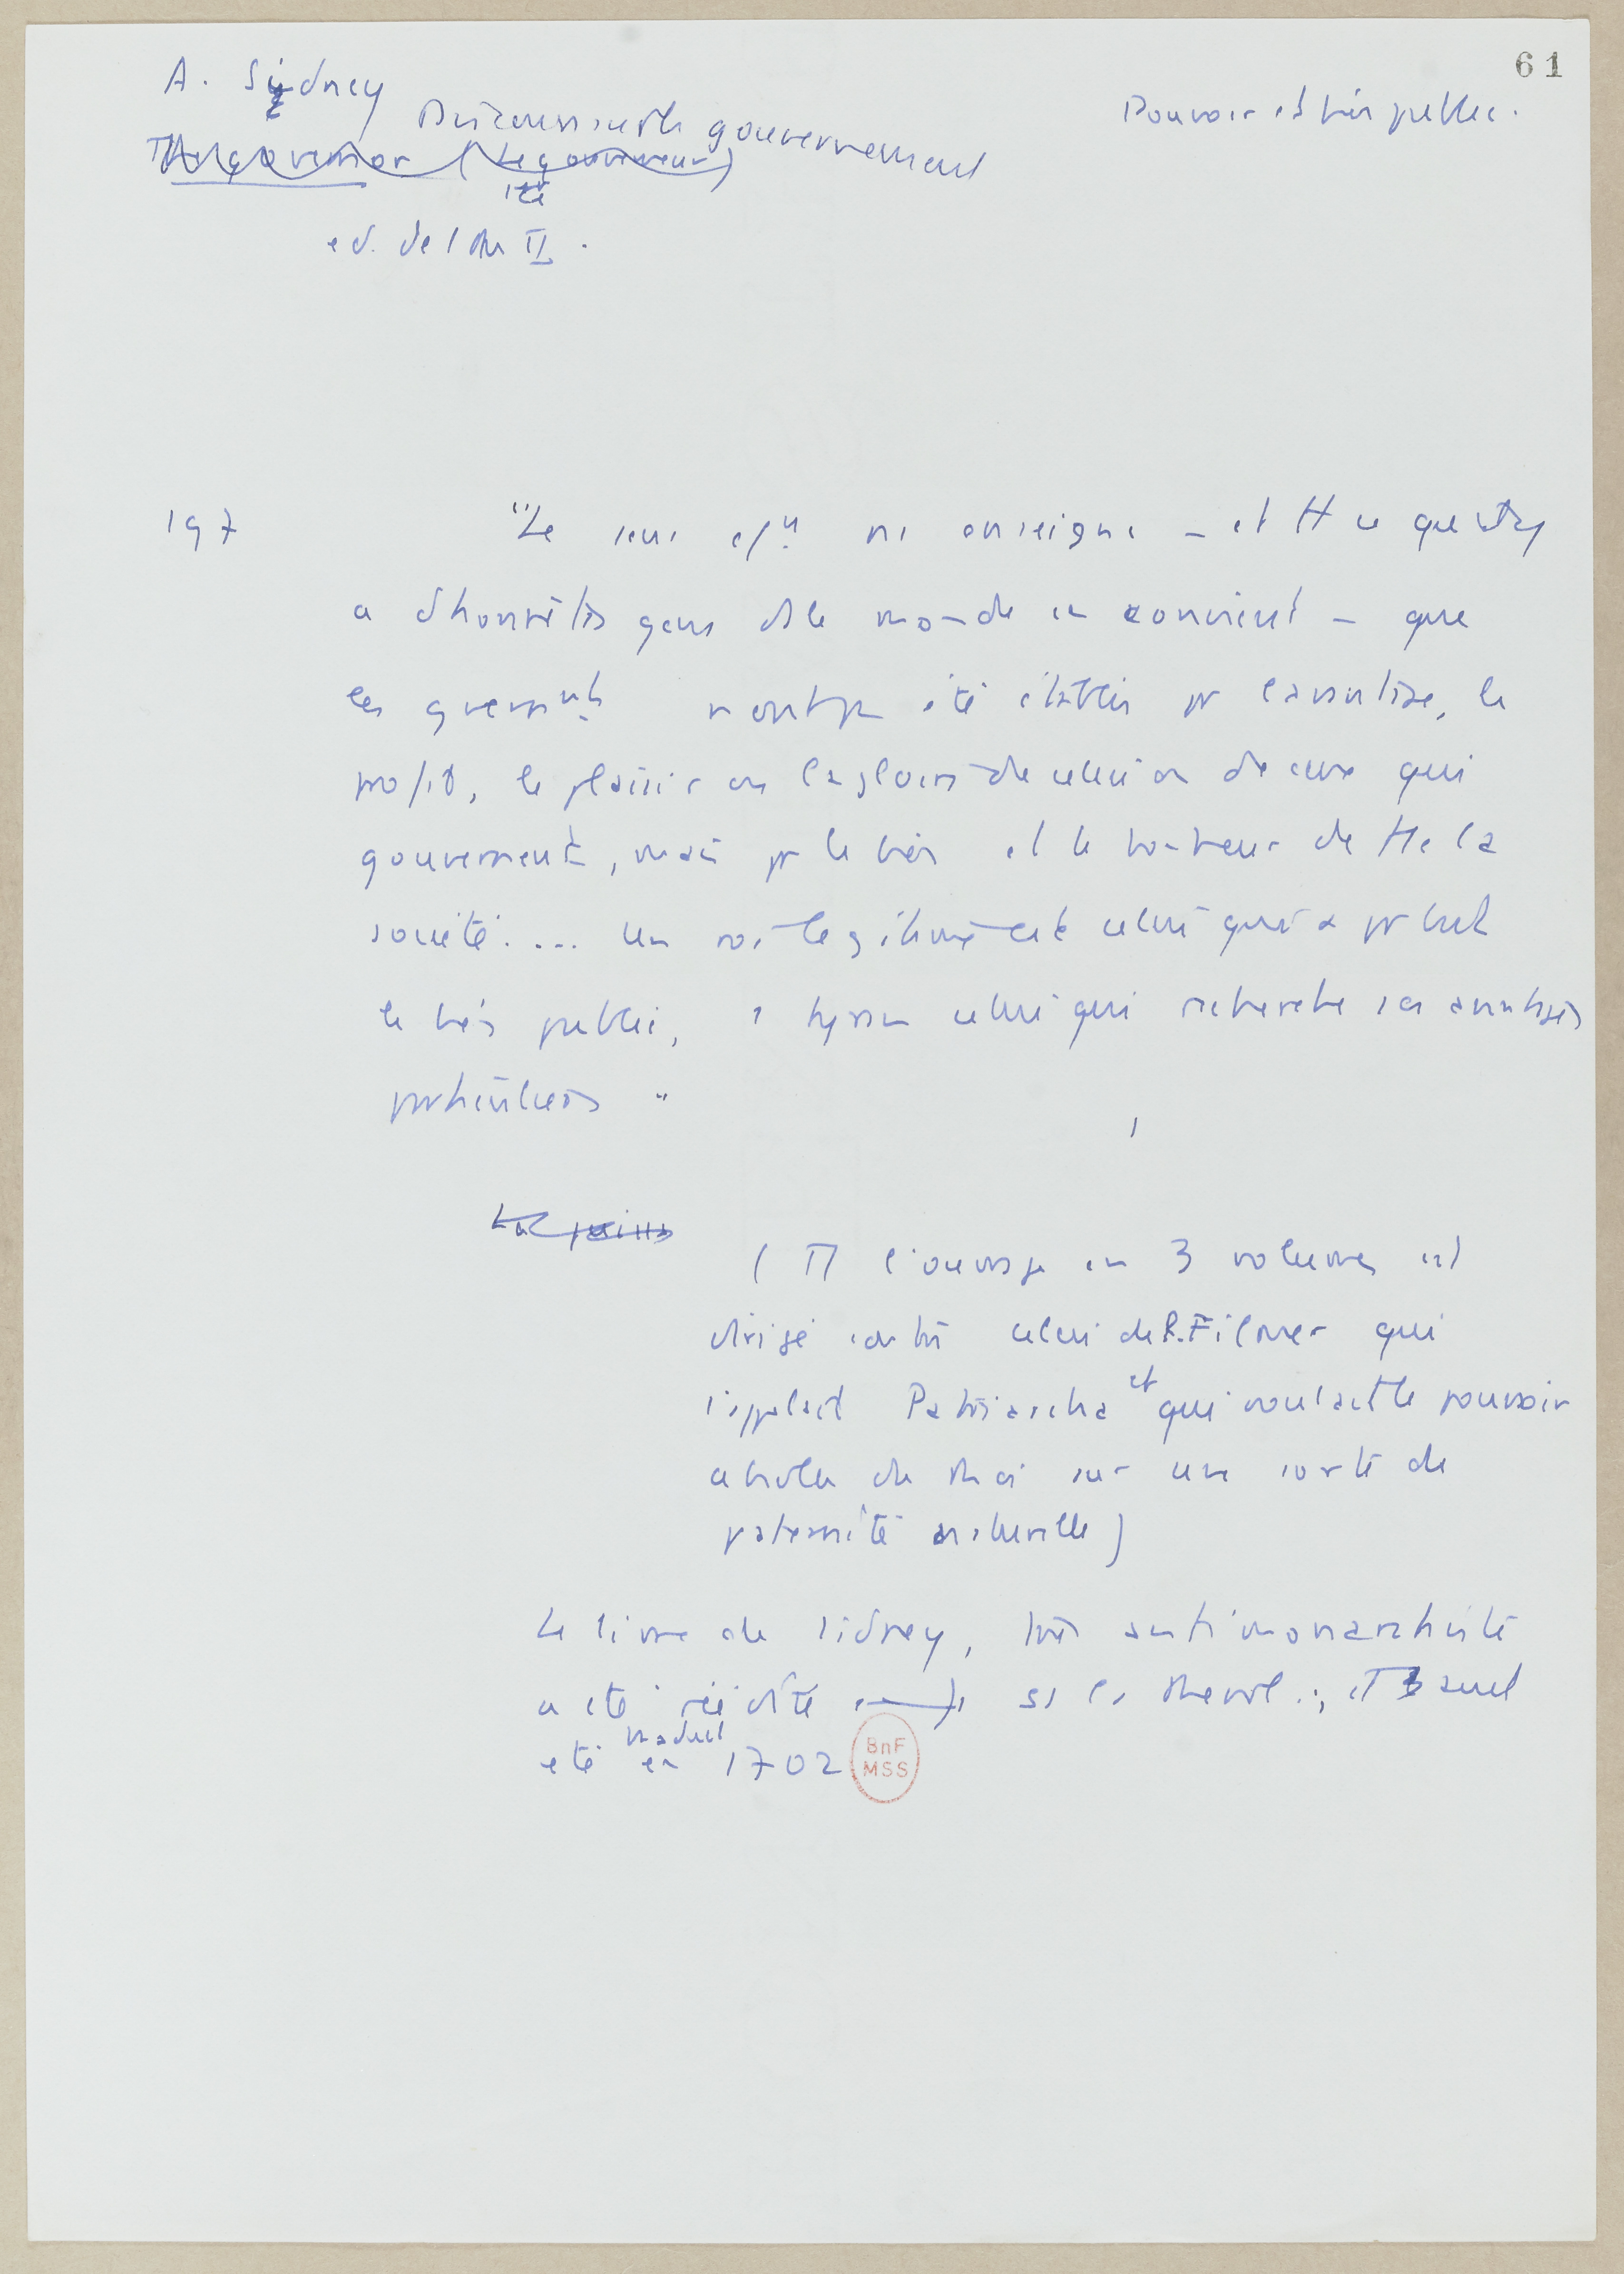 61
A. Sidney
Discours sur le gouvernement
Pouvoir et bien public.
The governor (Le gouverneur)
ed. de l'An II.
197
"Le sens cn ns enseigne – et tt ce qu'il y
a d'honnêtes gens ds le monde en convient – que
les gvernmts n'ont pas été établis pr l'avantage, le
profit, le plaisir ou la gloire de celui ou de ceux qui
gouvernent, mais pr le bien et le bonheur de tte la
société.... Un roi légitime est celui qui a pr but
le bien public, 1 tyran celui qui recherche ses avantages
particuliers"
( Tt l'ouvrage en 3 volumes est
dirigé contre celui de R. Filmer qui
s'appelait Patriarcha et qui voulait le pouvoir
absolu du Roi sur une sorte de
paternité)
Le livre de Sidney, très antimonarchiste
a été réédité ds la Revol.; et avait
été traduit en 1702
BnF
MSS